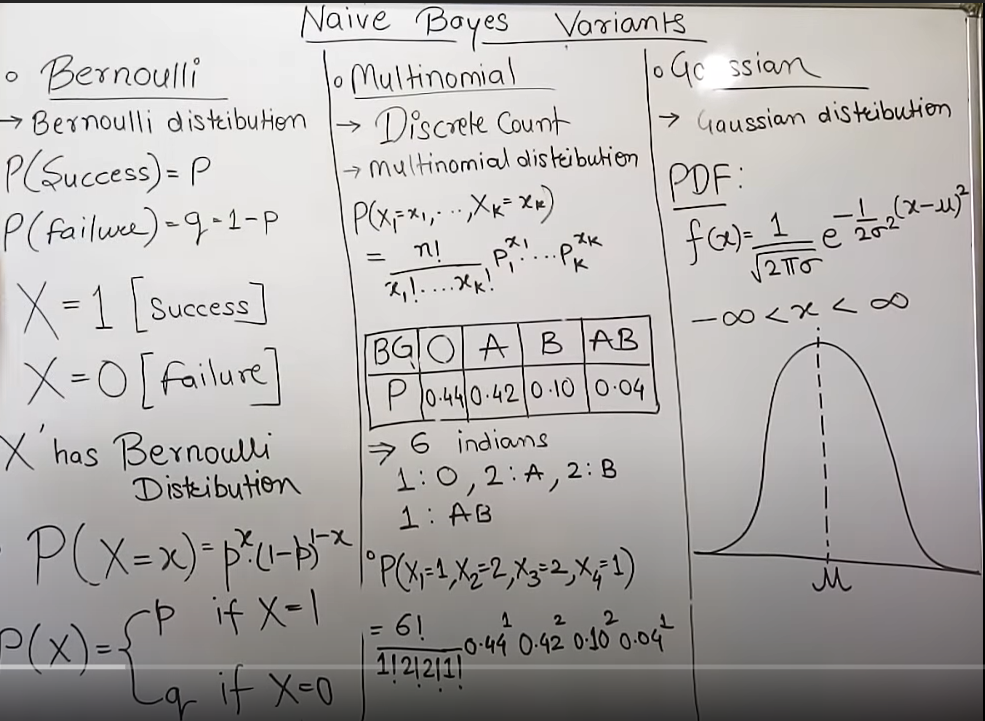 Naive Bayes Variants
○ Bernoulli
→ Bernoulli distribution
P(Success) = P
P(failure) = q = 1-p
X = 1 [Success]
X = 0 [failure]
X' has Bernoulli
Distribution
P(X=x) = p^x·(1-p)^1-x
P(X) = { p if X=1
q if X=0
○ Multinomial
→ Discrete Count
→ multinomial distribution
P(X₁=x₁,...,X_K=x_K)
= n! / x₁!....x_K! P₁^x₁....P_K^x_K
BG O A B AB
P 0.44 0.42 0.10 0.04
⇒ 6 indians
1: O, 2: A, 2: B
1: AB
○ P(X₁=1, X₂=2, X₃=2, X₄=1)
= 6! / 1!2!2!1! 0.44^1 0.42^2 0.10^2 0.04^1
○ Ga ssian
→ Gaussian distribution
PDF:
f(x) = 1/√2πσ e^-1/2σ²(x-μ)²
-∞ < x < ∞
μ